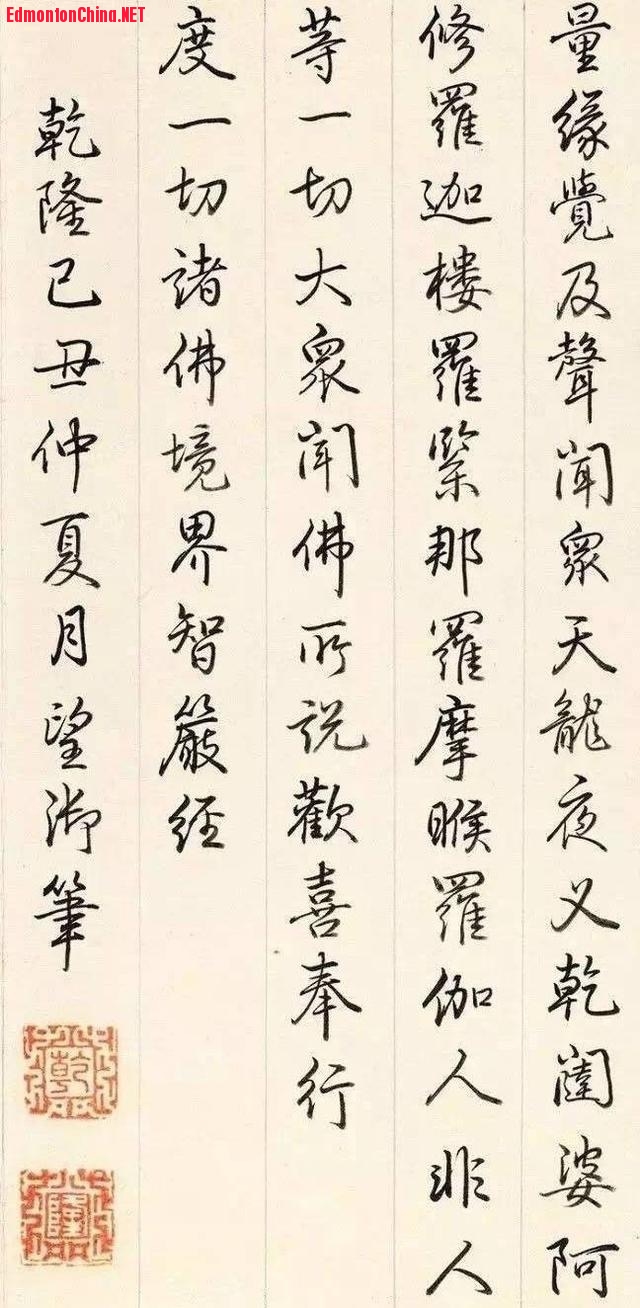 EdmontonChina.NET
量緣覺及聲聞衆天龍夜义乾闥婆阿
修羅迦樓羅緊那羅摩睺羅伽人非人
等一切大衆聞佛所說歡喜奉行
度一切諸佛境界智嚴經
乾隆己丑仲夏月望御筆
乾
隆